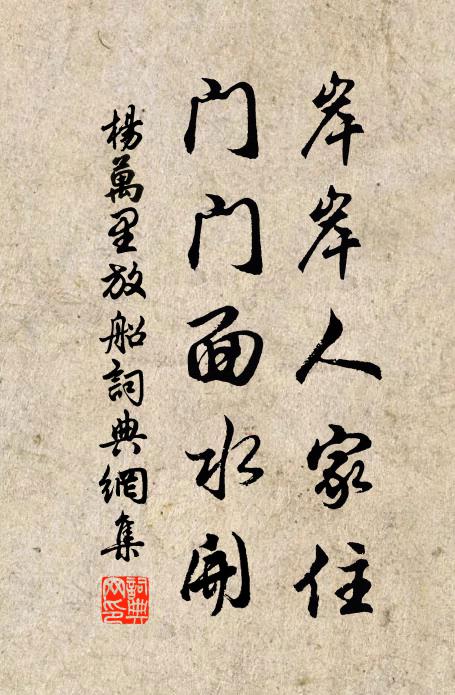 岸岸人家住
门门面水開
楊萬里放船詞典網集
詞典
网印